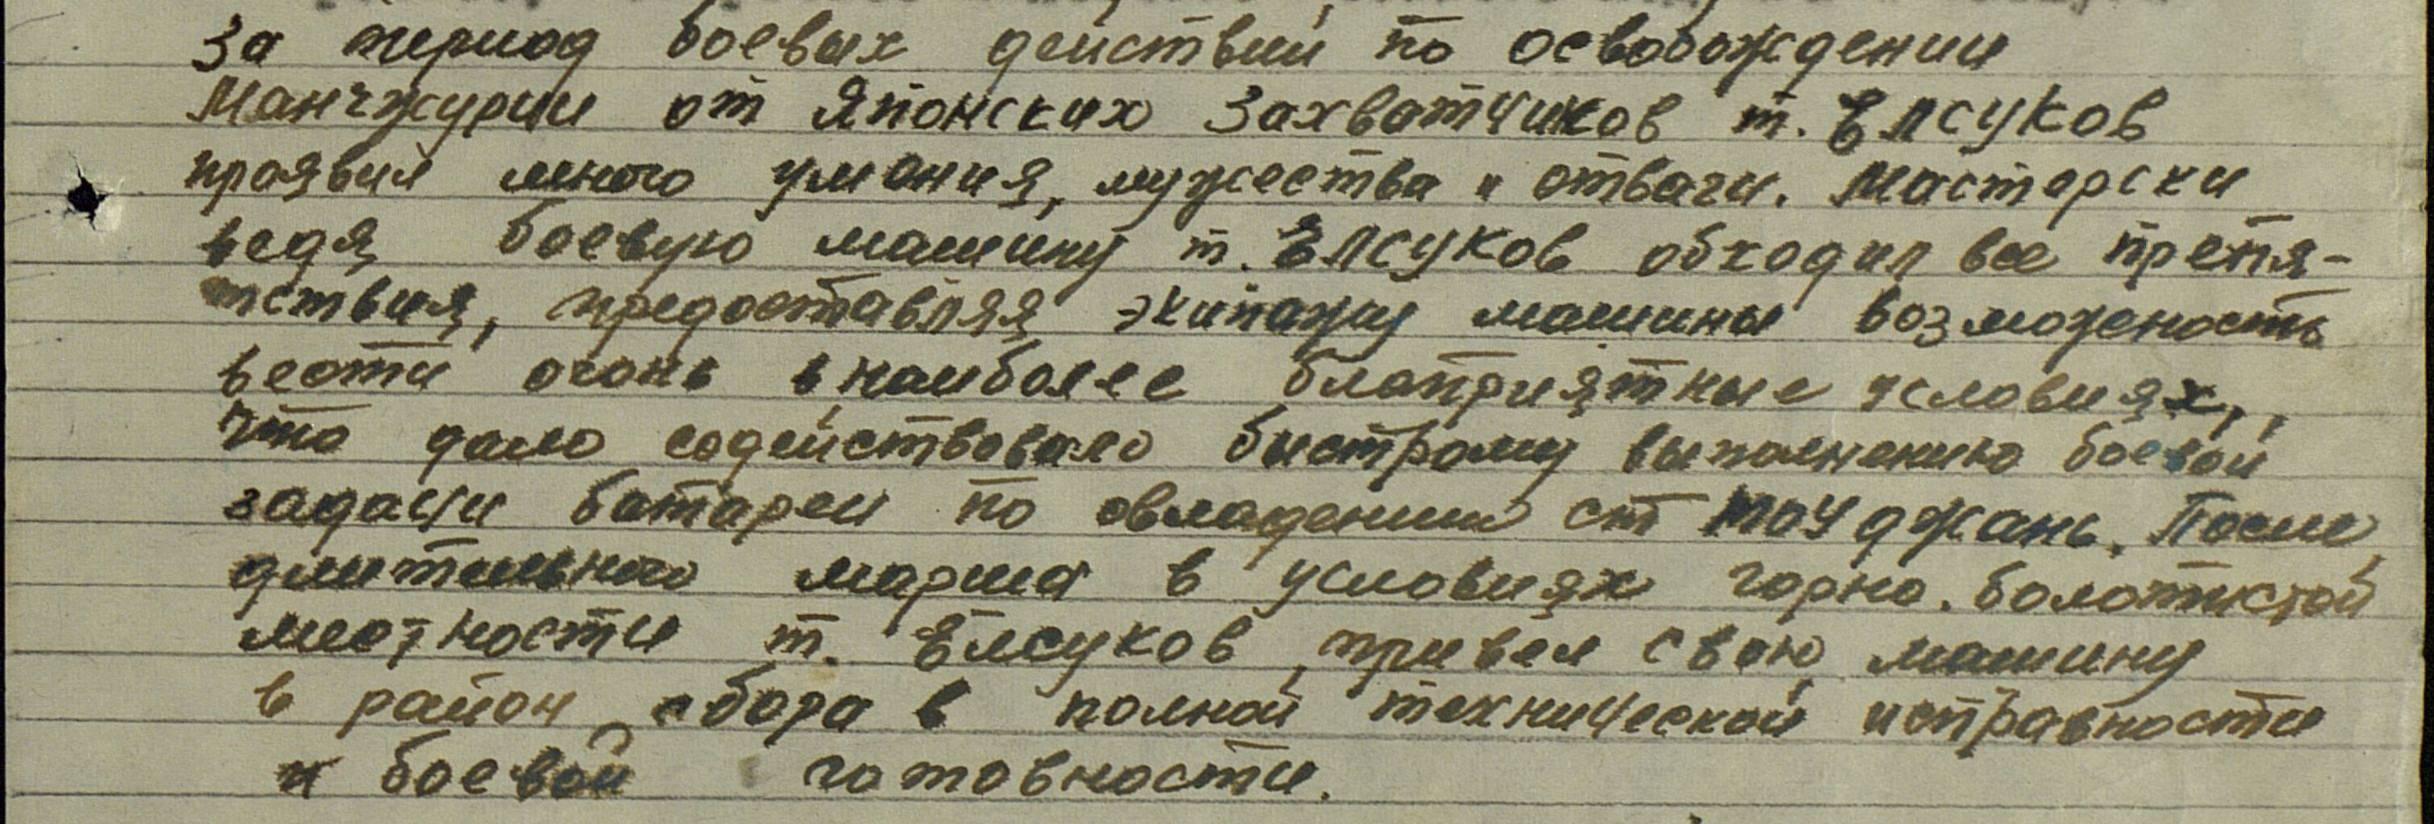 За период боевых действий по освобождении
Манчжурии от Японских Захватчиков т. Елсуков
проявил много умения, мужества и отваги. Мастерски
ведя боевую машину т. Елсуков обходил все препя-
тствия, предоставляя экипажу машины возможность
вести огонь в наиболее блаприятные условиях,
что дало содействовало быстрому выполнению боевой
задачи батареи по овладению ст Тоуджань. После
длительного марша в условиях горно. болотистой
местности т. Елсуков привел свою машину
в район сбора в полной технической исправности
и боевой готовности.